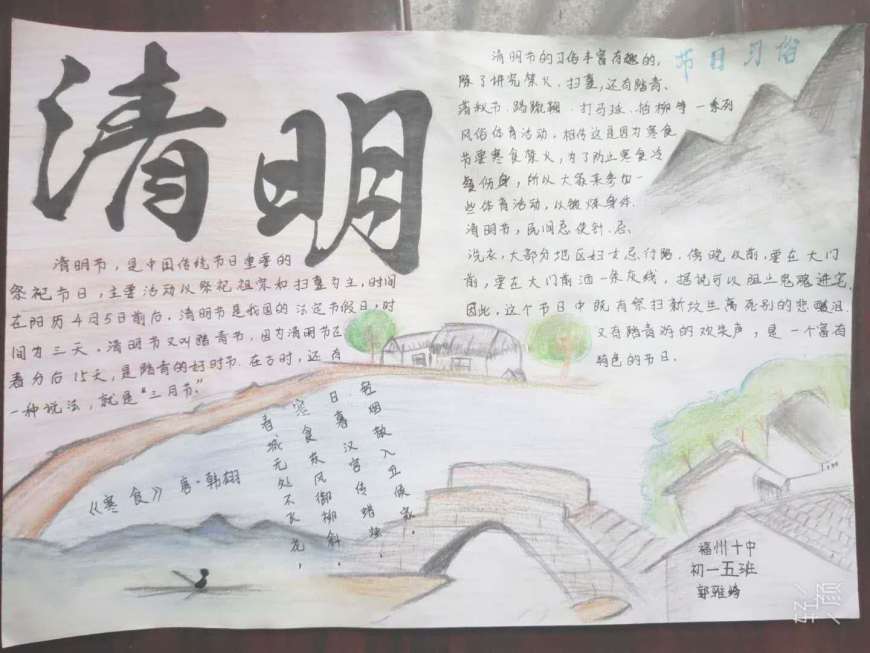 清明
清明节，是中国传统节日重要的
祭祀节日，主要活动以祭祀祖宗和扫墓为主，时间
在阳历4月5日前后。清明节是我国的法定节假日，时
间为三天。清明节又叫踏青节，因为清明节在
春分后15天，是踏青的好时节。在古时，还有
一种说法，就是“三月节”
节日习俗
清明节的习俗丰富有趣的，
除了讲究禁火、扫墓，还有踏青、
荡秋千、踢蹴鞠、打马球、插柳等一系列
风俗体育活动，相传这是因为寒食
节要寒食禁火，为了防止寒食冷
餐伤身，所以大家来参加一
些体育活动，以锻炼身体。
清明节，民间忌使针，忌
洗衣，大部分地区妇女忌行路。傍晚以前，要在大门
前，要在大门前洒一条灰线，据说可以阻止鬼魂进宅
因此，这个节日中既有祭扫新坟生离死别的悲酸泪
又有踏青游的欢笑声，是一个富有
特色的节日。
《寒食》 唐·韩翃
春城无处不飞花，
寒食东风御柳斜，
日暮汉宫传蜡烛，
轻烟散入五侯家。
福州十中
初一五班
轻颜